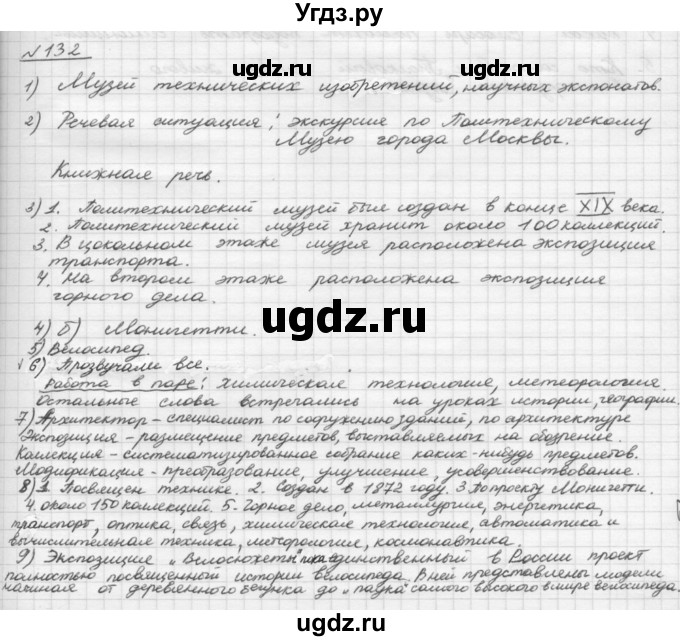 Угдз.ру
№132
1) Музей технических изобретений, научных экспонатов.
2) Речевая ситуация: экскурсия по Политехническому
Музею города Москвы.
Книжная речь.
3) 1. Политехнический музей был создан в конце XIX века.
2. Политехнический музей хранит около 100 коллекций.
3. В цокольном этаже музея расположена экспозиция
транспорта.
4. На втором этаже расположена экспозиция
горного дела.
4) Б) Монигетти.
5) Велосипед.
6) Прозвучали все.
Работа в паре: химическая технология, метеорология.
Остальные слова встречались на уроках истории, географии.
7) Архитектор – специалист по сооружению зданий, по архитектуре
Экспозиция – размещение предметов, выставляемых на обозрение.
Коллекция – систематизированное собрание каких-нибудь предметов.
Модификация – преобразование, улучшение, усовершенствование.
8) 1. Посвящен технике. 2. Создан в 1872 году. 3. По проекту Монигетти.
4. около 150 коллекций. 5. Горное дело, металлургия, энергетика,
транспорт, оптика, связь, химическая технология, автоматика и
вычислительная техника, метеорология, космонавтика.
9) Экспозиция "Велосюжеты" единственный в России проект
полностью посвященный истории велосипеда. В ней представлены модели
начиная от деревянного бегунка до "паука" самого высокого в мире велосипеда.
ugdz.ru ugdz.ru
ugdz.ru ugdz.ru
ugdz.ru
ugdz.ru ugdz.ru
ugdz.ru ugdz.ru
Угдз.ру